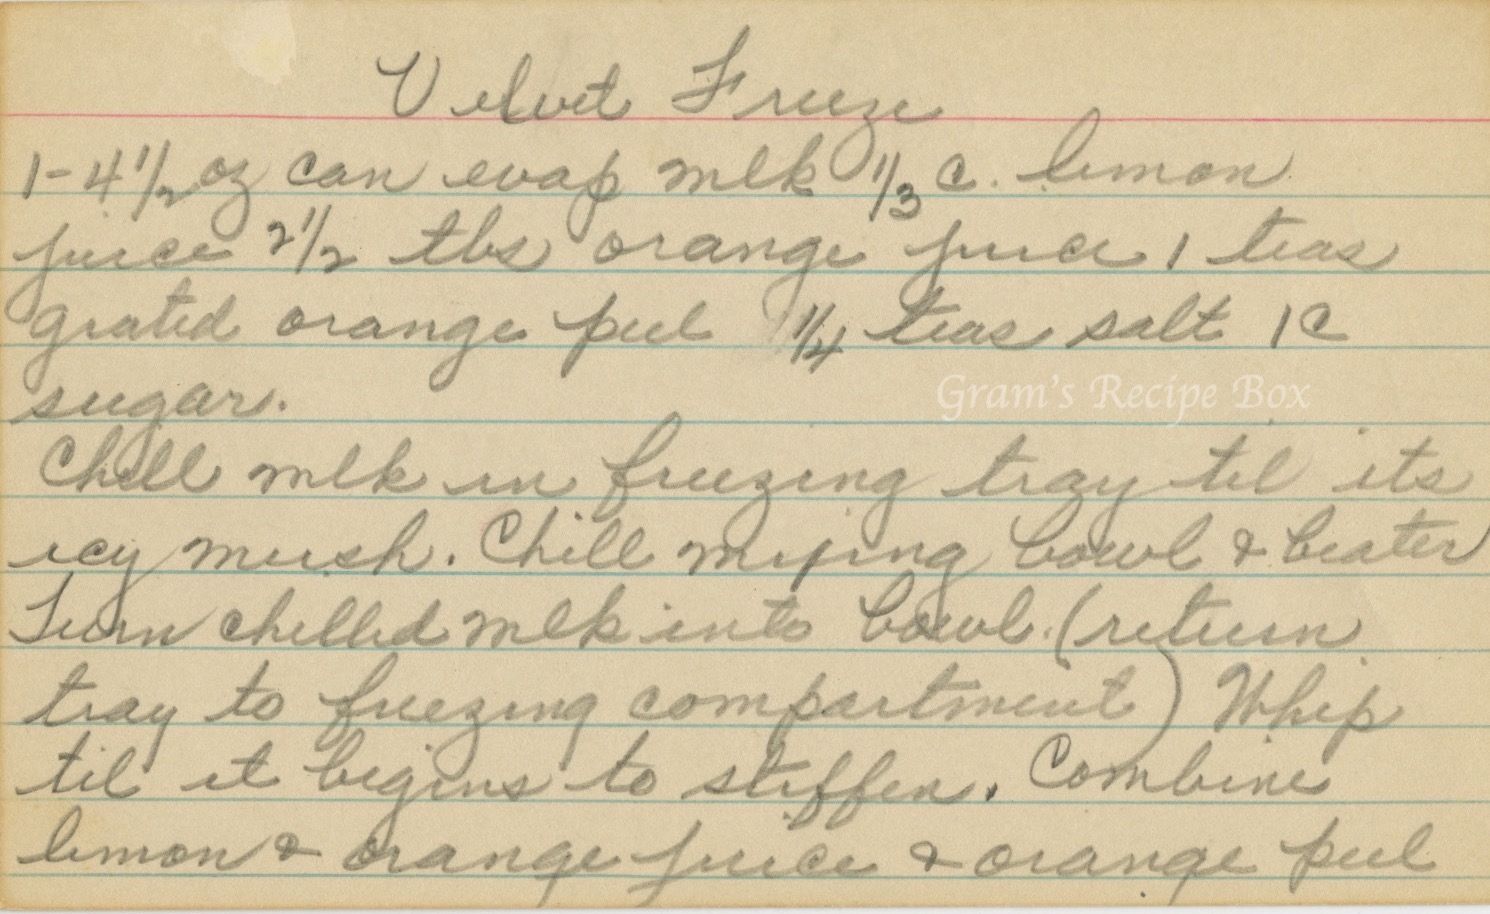 Velvet Freeze
1-4 1/2 oz can evap mlk 1/3 c. lemon
juice 2 1/2 tbs orange juice 1 teas
grated orange peel 1/4 teas salt 1 c
sugar.
Gram's Recipe Box
Chill mlk in freezing tray til its
icy mush. Chill mixing bowl & beater
Turn chilled mlk into bowl. (return
tray to freezing compartment) Whip
til it begins to stiffen. Combine
lemon & orange juice & orange peel